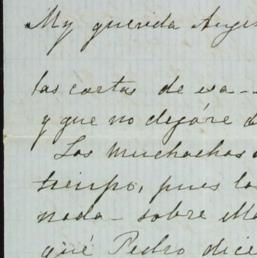 My querida Ange
las cartas de esa -
y que no dejáre d
Los muchachos
tiempo, pues la
nada - sobre Ma
qué Pedro dice